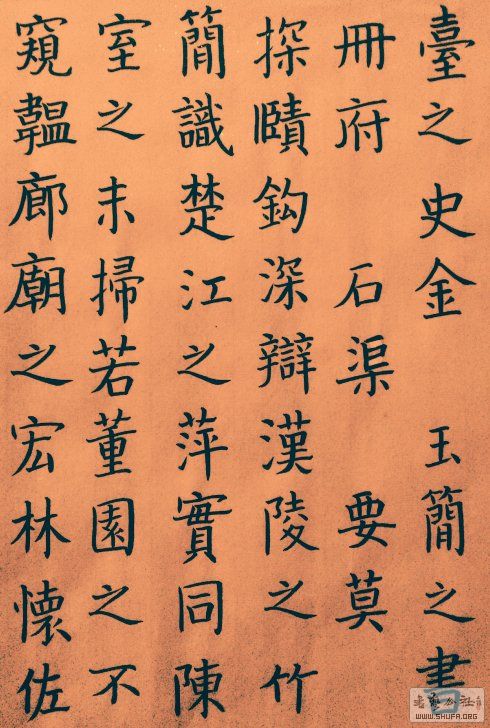 臺之 史金 玉簡之書
冊府 石渠 要莫
探賾鈎深辯漢陵之竹
簡識楚江之萍實同陳
室之未掃若董園之不
窺韞廊廟之宏林懷佐
书艺公社
WWW.SHUFA.ORG